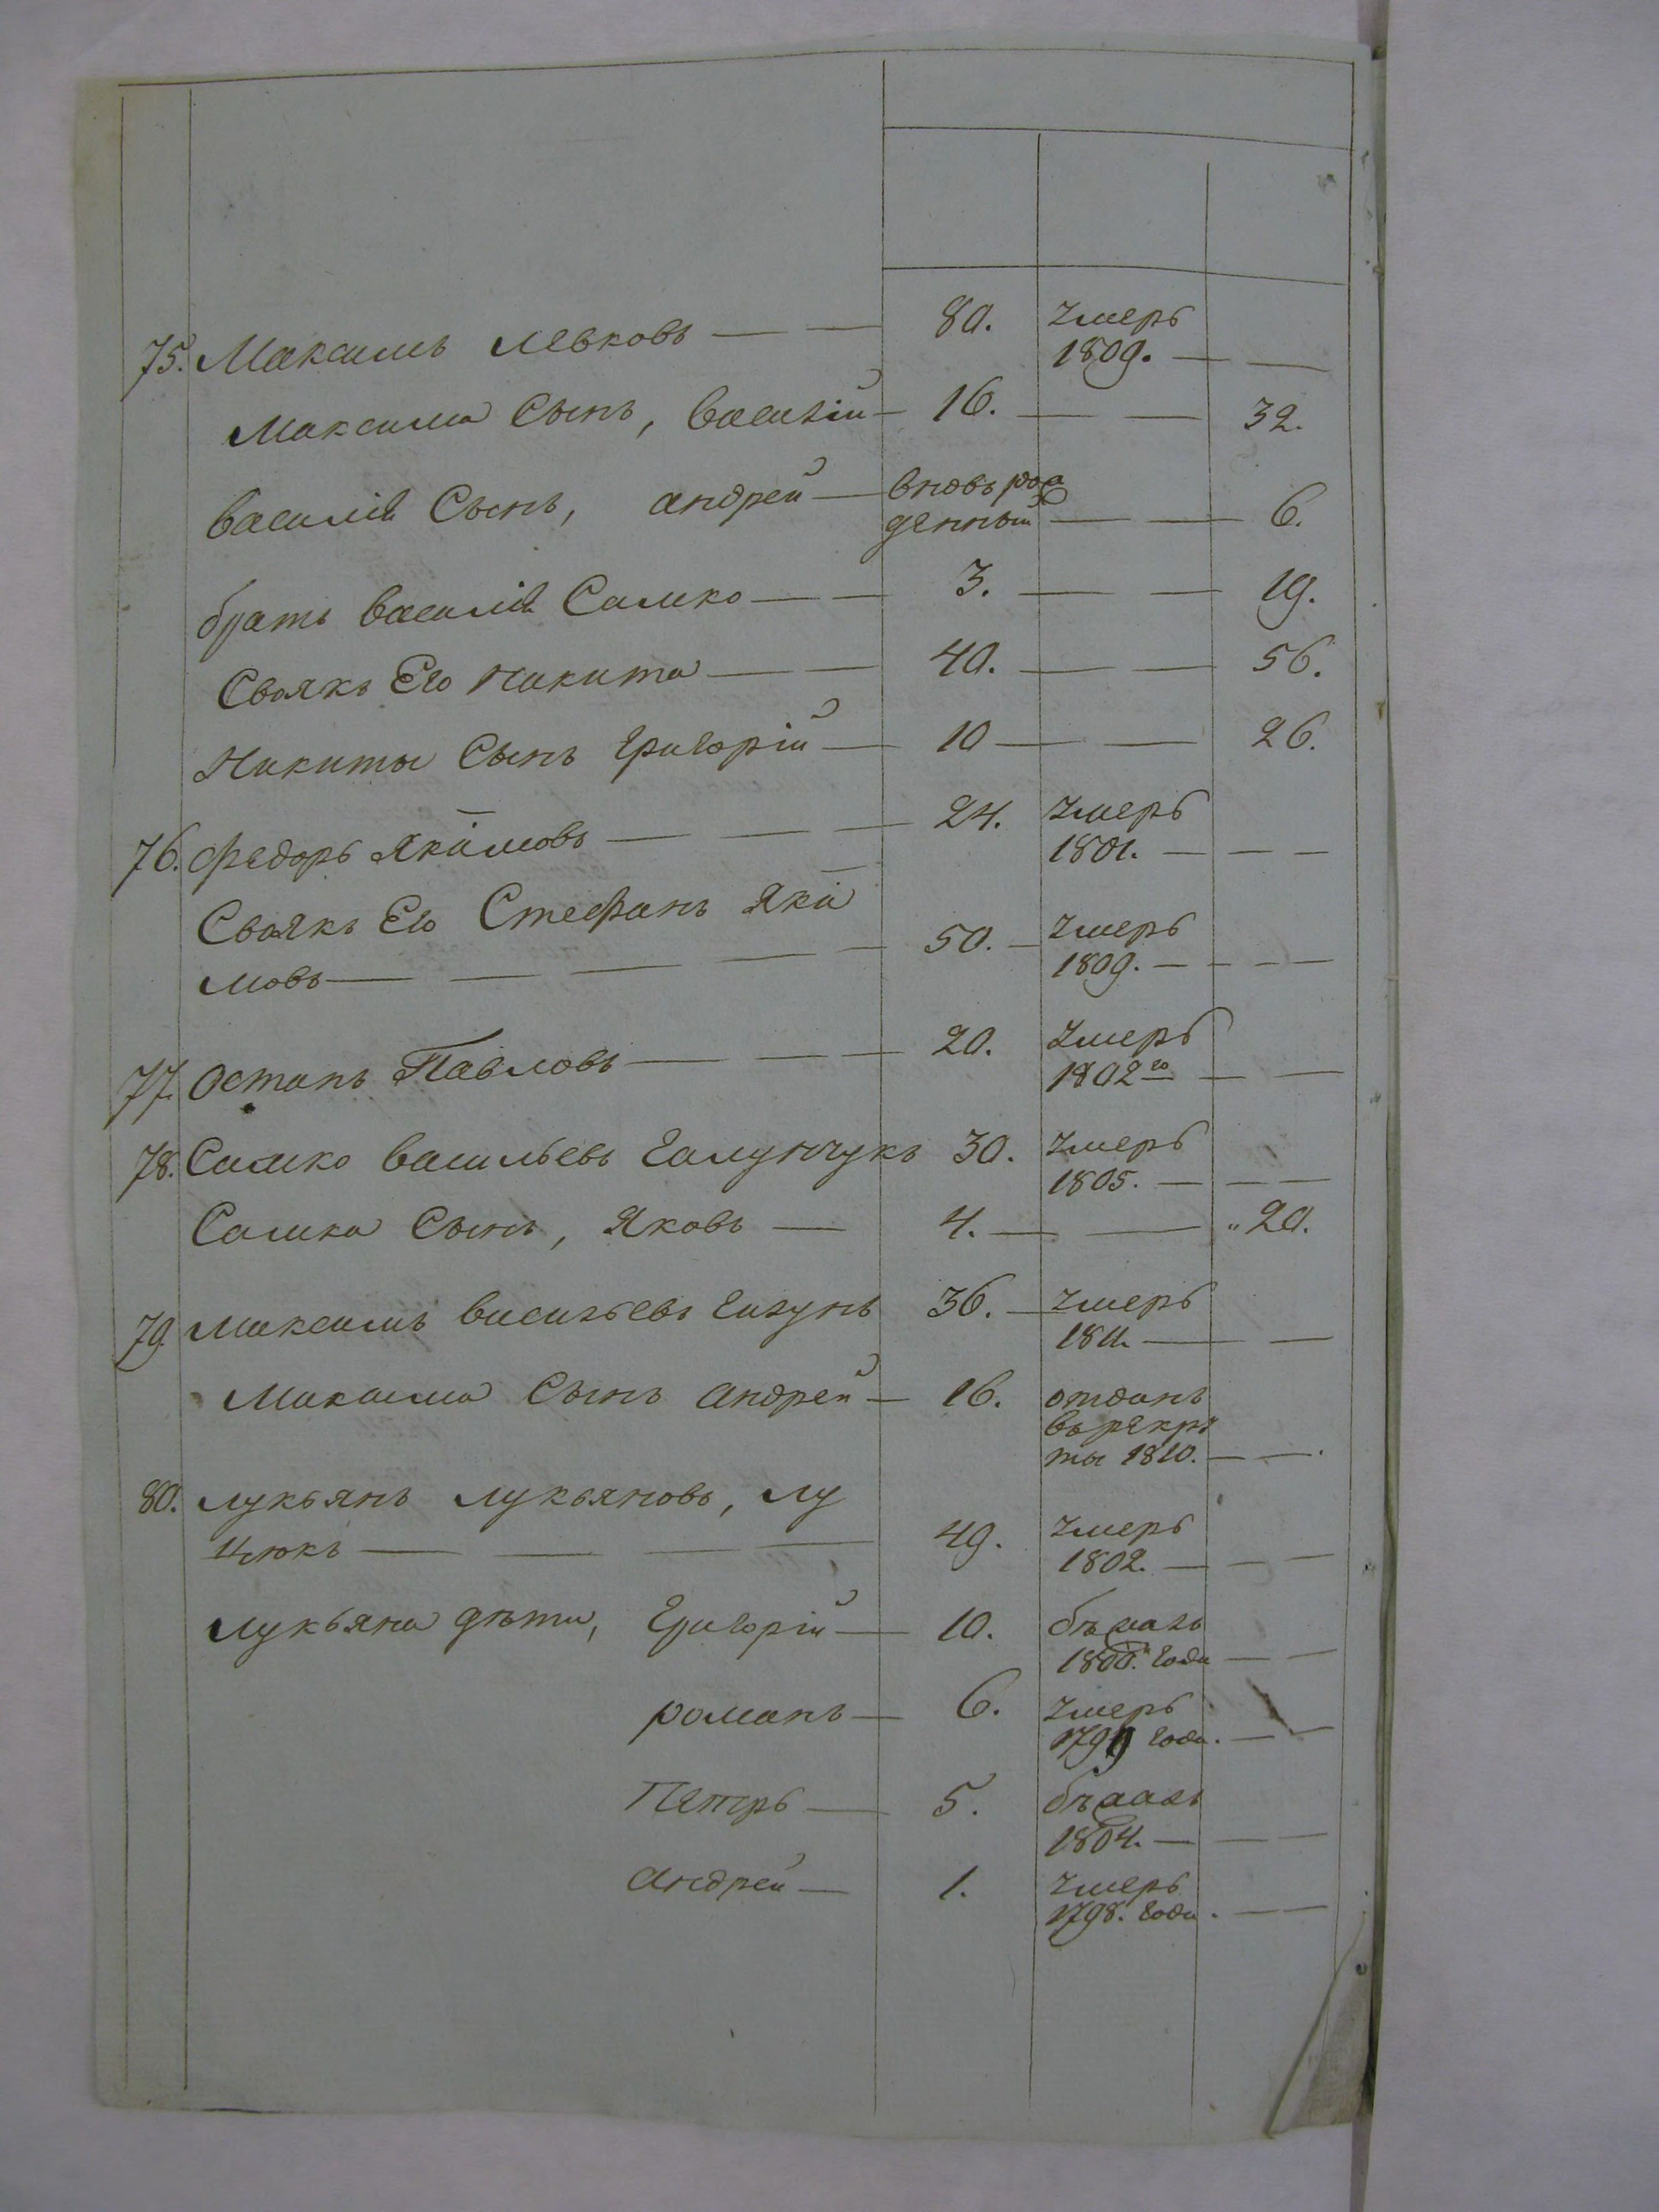 75. Максимъ Левковъ — — 80. умеръ
1809. — —
Максима Сынъ, Василій — 16. — — 32.
Василія Сынъ, Андрей — вновь рож
денный — — 6.
братъ Василія Самко — — 3. — — 19.
Своякъ Его Никита — — 40. — — 56.
Никиты Сынъ Григорій — 10 — — 26.
76. Федоръ Якимовъ — — — 24. умеръ
1801. — — —
Своякъ Его Стефанъ Яки
мовъ — — — — — 50. — умеръ
1809. — — —
77. Остапъ Павловъ — — — 20. умеръ
1802го — —
78. Самко Васильевъ Галунчукъ 30. умеръ
1805. — — —
Самка Сынъ, Яковъ — 4. — — „ 20.
79 Максимъ Васильевъ 36. — умеръ
1811. — —
Максима Сынъ Андрей — 16. отданъ
въ рекру
ты 1810. — —
80. Лукьянъ Лукьяновъ, Лу
цюкъ — — — — 49. умеръ
1802. — — —
Лукьяна дѣти, Григорій — 10. бѣжалъ
года — —
романъ — 6. умеръ
1799 года. — —
Петръ — 5. бѣжалъ
1804. — — —
Андрей — 1. умеръ
1798. года. — —